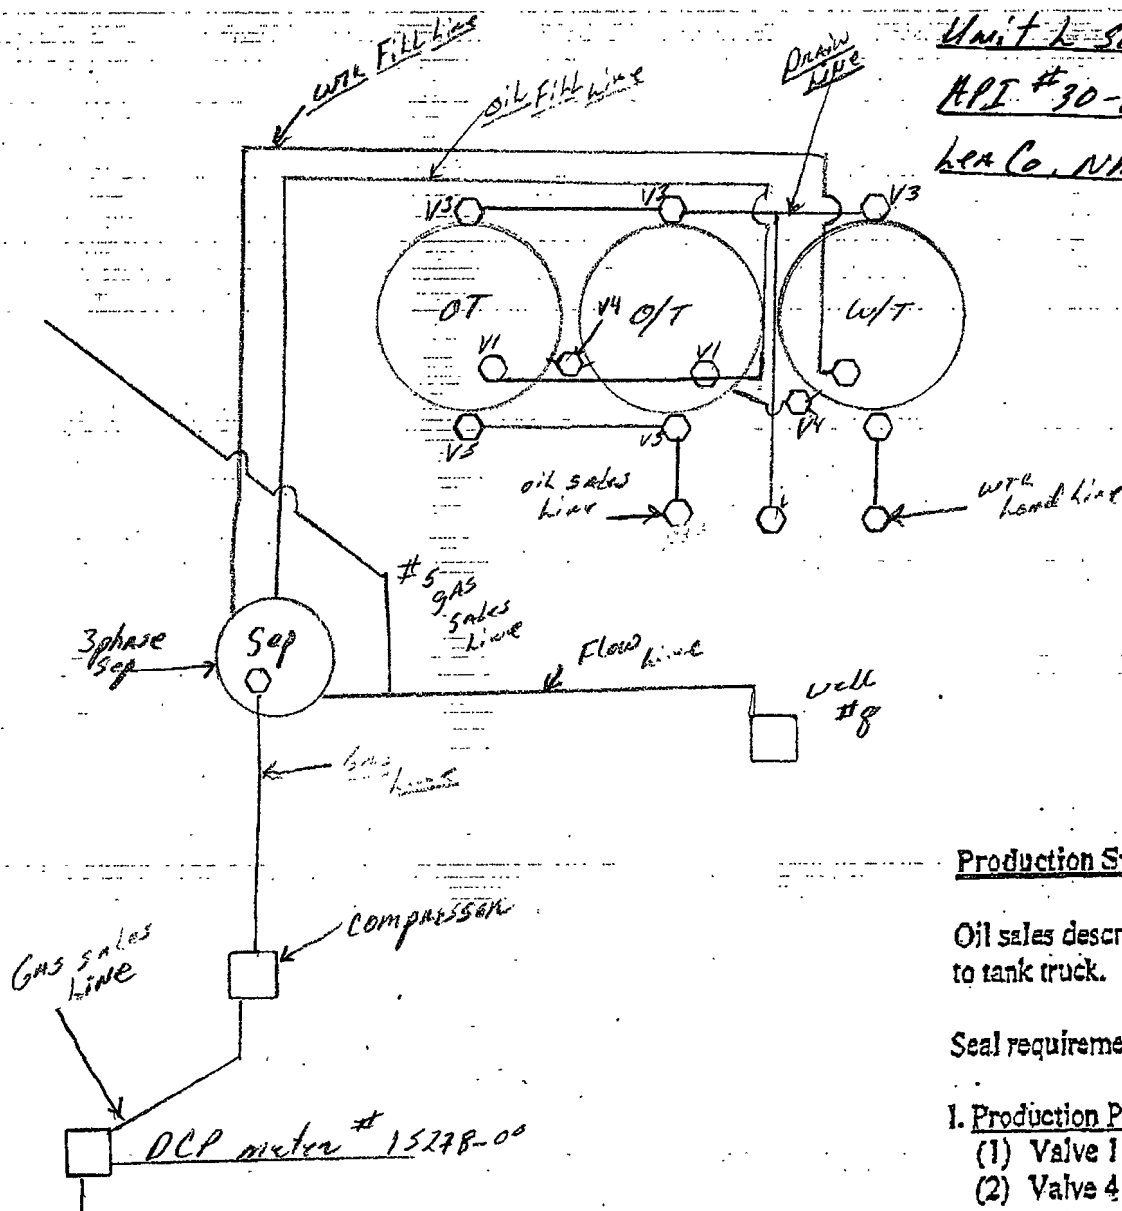 Unit L S
API # 30-
Lea Co, NM
wtr Fill Line
oil Fill Line
Drain
Line
V3
V3
V3
OT
V4
O/T
W/T
V1
V1
V4
V5
V5
oil sales
Line
wtr
Load Line
#5
gas
sales
Line
3phase
sep
Sep
Flow Line
well
#8
Gas
Lines
compressor
Gas sales
Line
DCP meter # 15278-00
Production S
Oil sales descr
to tank truck.
Seal requireme
1. Production P
(1) Valve 1
(2) Valve 4